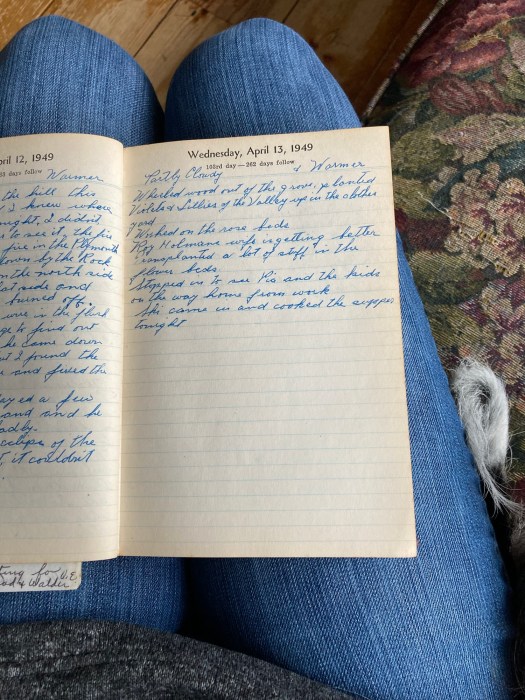 ril 12, 1949
63 days follow
Warmer
the hill this
I knew whose
night, I didn't
to see it, the
fire in the Plymouth
down by the Rock
on the north side
and
burned off.
were in the
ge to find out
he came down
I found the
and fixed the
ayed a few
and and he
adly.
eclips of the
t, it couldn't
ting for
Dad & Walder
Wednesday, April 13, 1949
103rd day — 262 days follow
Partly Cloudy & Warmer
Wheeled wood out of the grove, planted
Violets & Lillies of the Valley up in the clothes
yard
Worked on the rose beds
Roy Holmans wife is getting better
Transplanted a lot of stuff in the
flower beds.
Stopped in to see Pis and the kids
on the way home from work
She came in and cooked the supper
tonight